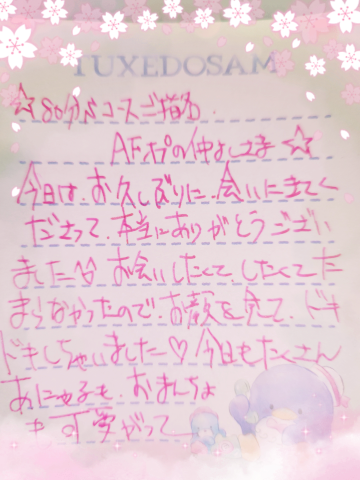 TUXEDOSAM
☆80分コースご指名
AFオプの仲よしさま☆
今日は、お久しぶりに、会いにきてく
ださって、本当にありがとうござい
ました お会いしたくて、したくてた
まらなかったので、お顔を見て、ドキ
ドキしちゃいました♡今日もたくさん
あにゃ子も、おまんちょ
も可愛がって